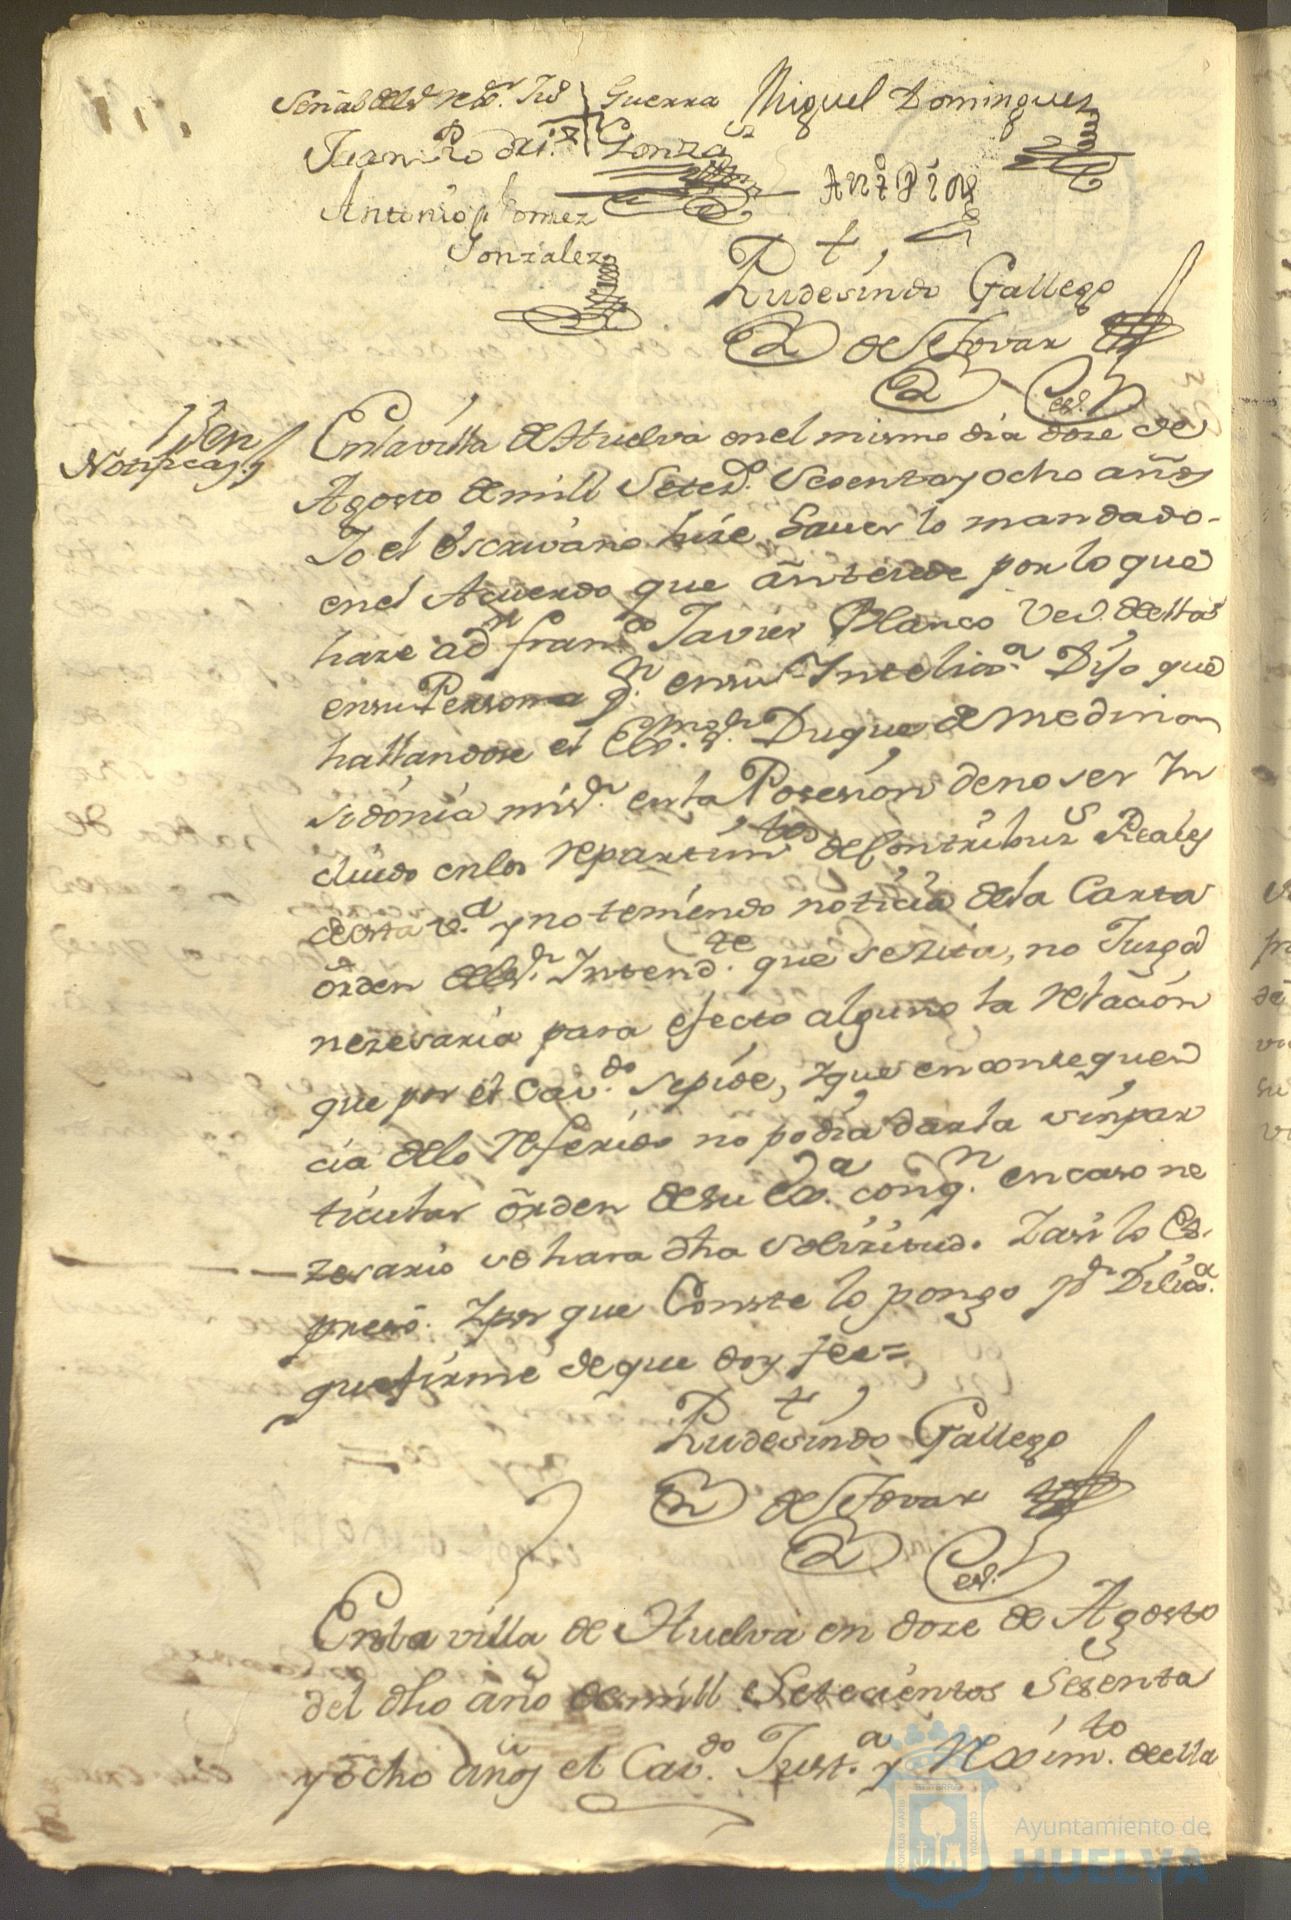 Señal del Sr. Rdor. Jud + Guerra Miguel Dominguez
Juan Gonza
Antonio Gomez
Gonzalez
Rudesindo Gallego
de Tovar
esno.
Enla villa de Huelva en el mismo dia doze de
Notificazn.
Agosto de mill Setezs. Sesenta y ocho años
Yo el escrivano hize Saver lo mandado
en el Acuerdo que añtezede por lo que
haze a Dn. franco. Javier Blanco Vec. de ella
ensu Persona qn. ensu Intelia. Dijo que
hallandose el Exmo. Sr. Duque de Medina
sidónia mi Sr. en la Posesión de no ser In
cluido en los repartimtos. de Contribus. Reales
de esta va. y no teniendo notícia de la Carta
órden del Sr. Intendte. que se Zita, no Juzga
nezesaria para efecto alguno la relación
que por el Cavdo. se pide, y que en conseguen
cia de lo referido no podia darla sin par
ticular órden de su Exa. con qn. en caso ne
zesario se hara dha solizitud. Y asi lo es
presó. Y por que Conste lo pongo pr. Dilia.
que firmé de que doy fee=
Rudesindo Gallego
de Tovar
esno.
Enla villa de Huelva en doze de Agosto
del dho año de mill Setecientos Sesenta
y ocho años el Cavdo. Justa. y Reximto. de ella
Ayuntamiento de
HUELVA